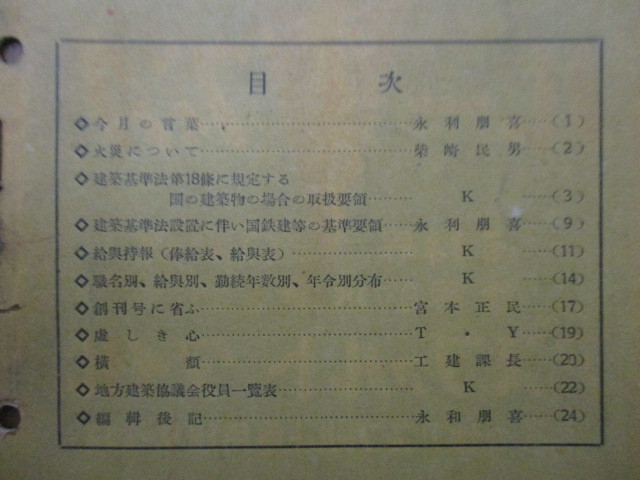 目次
◇今月の言葉……永利朋喜…(1)
◇火災について……柴崎民男…(2)
◇建築基準法第18條に規定する
国の建築物の場合の取扱要領……K……(3)
◇建築基準法設置に伴い国鉄建等の基準要領……永利朋喜…(9)
◇給與持報(俸給表、給與表)……K……(11)
◇職名別、給與別、勤続年数別、年令別分布……K……(14)
◇創刊号に省ふ……宮本正民…(17)
◇虚しき心……T・Y…(19)
◇横顔……工建課長…(20)
◇地方建築協議会役員一覽表……K……(22)
◇編輯後記……永和朋喜…(24)